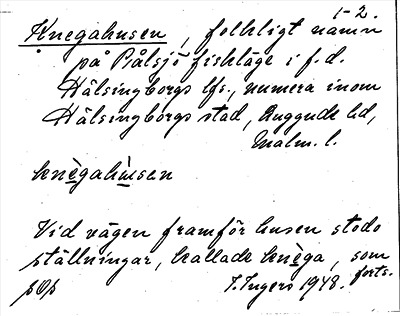 1-2.
Knegahusen, folkligt namn
på Pålsjö fiskläge i f.d.
Hälsingborgs lfs., numera inom
Hälsingborgs stad, Luggude hd,
Malm. l.
knègahùsen
Vid vägen framför husen stodo
ställningar, kallade knèga, som
forts.
I. Ingers 1948.